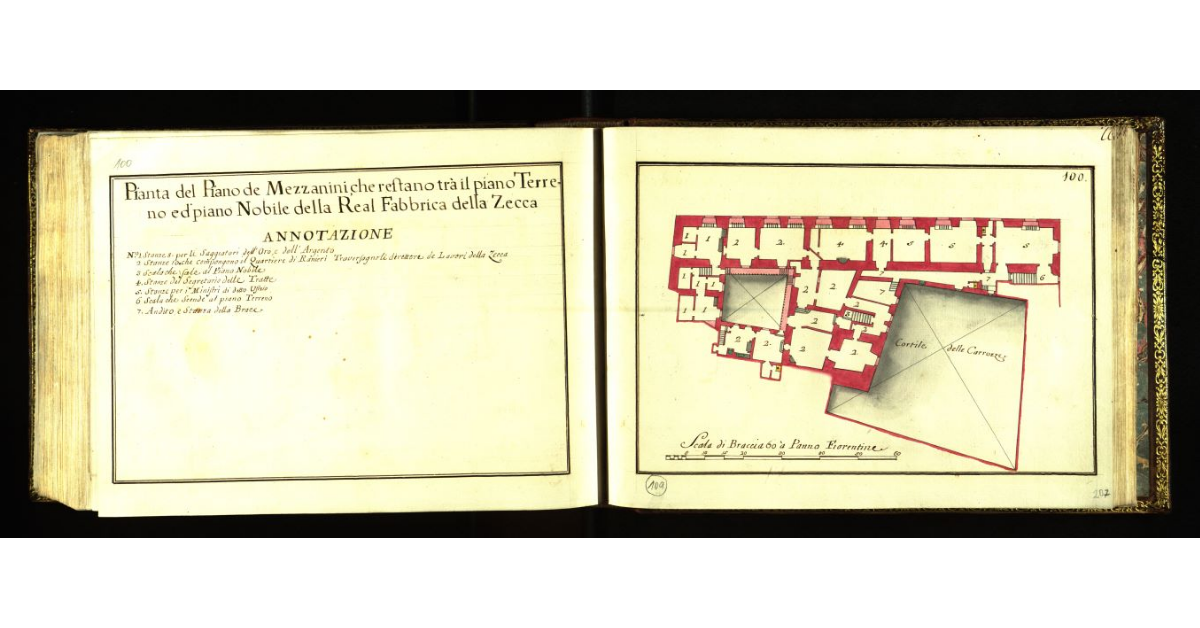 100
Pianta del Piano de Mezzanini, che restano trà il piano Terre-
no ed piano Nobile della Real Fabbrica della Zecca
ANNOTAZIONE
N.º 1 Stanze per li Saggiatori dell'Oro, e dell'Argento
2 Stanze che compongono il Quartiere di Direttore de Lavori della Zecca
3 Scala che sale al Piano Nobile
4. Stanze del Segretario delle Tratte
5. Stanze per i Ministri di detto Ufizio
6 Scala che scende al piano Terreno
7. Andito e Stanza della Brace
100.
1 1 2 2. 4 4 5 6 8
1
1 1 1 2 2 7 7 6
1 1 2
2 3
2 2. 2 2
Cortile delle Carrozze
Scala di Braccia 60 a Panno Fiorentine
109
207